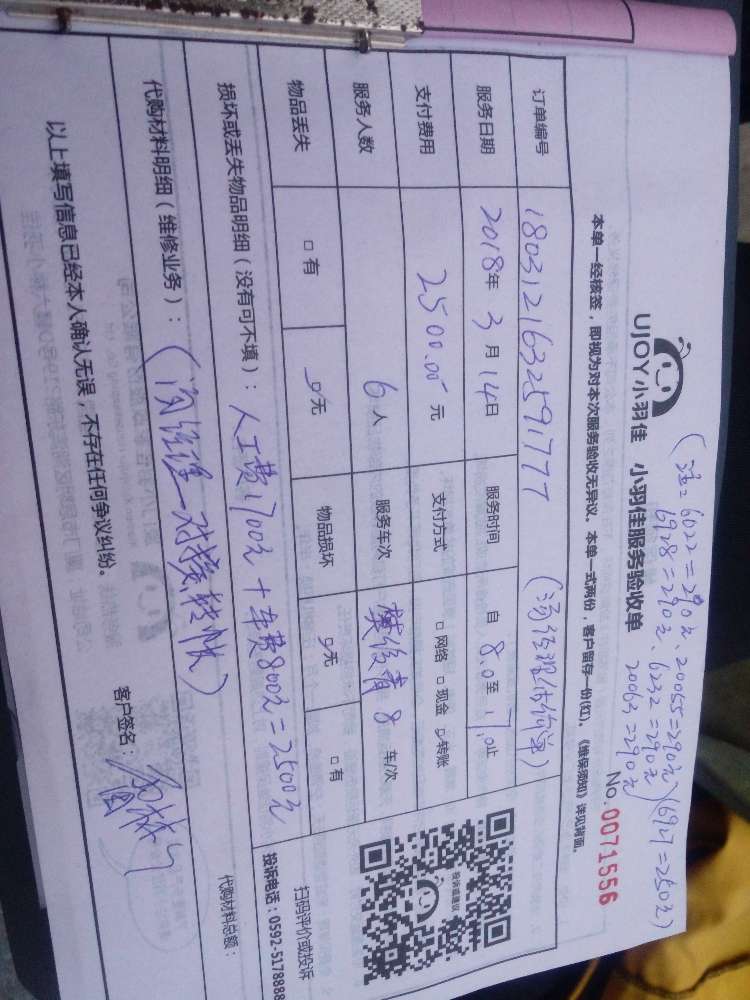 (注：6022=290元、20055=290元
6928=290元、6232=290元)(6927=250元)
20063=290元
UJOY小羽佳 小羽佳服务验收单 No.0071556
本单一经核签，即视为对本次服务验收无异议。本单一式两份，客户留存一份(红)。《维保须知》详见背面。
订单编号 180312163259177 (汤经理估价单)
服务日期 2018年3月14日 服务时间 自8.0至17.0止
支付费用 2500.00元 支付方式 □网络 □现金 ☑转账
服务人数 6人 服务车次 8车/次
物品丢失 □有 ☑无 物品损坏 ☑无 □有
扫码评价或投诉
投诉电话：0592-5178888
投诉或建议
损坏或丢失物品明细（没有可不填）：人工费1700元+车费800元=2500元
代购材料明细（维修业务）：(对接转账) 代购材料总额：
以上填写信息已经本人确认无误，不存在任何争议纠纷。 客户签名：